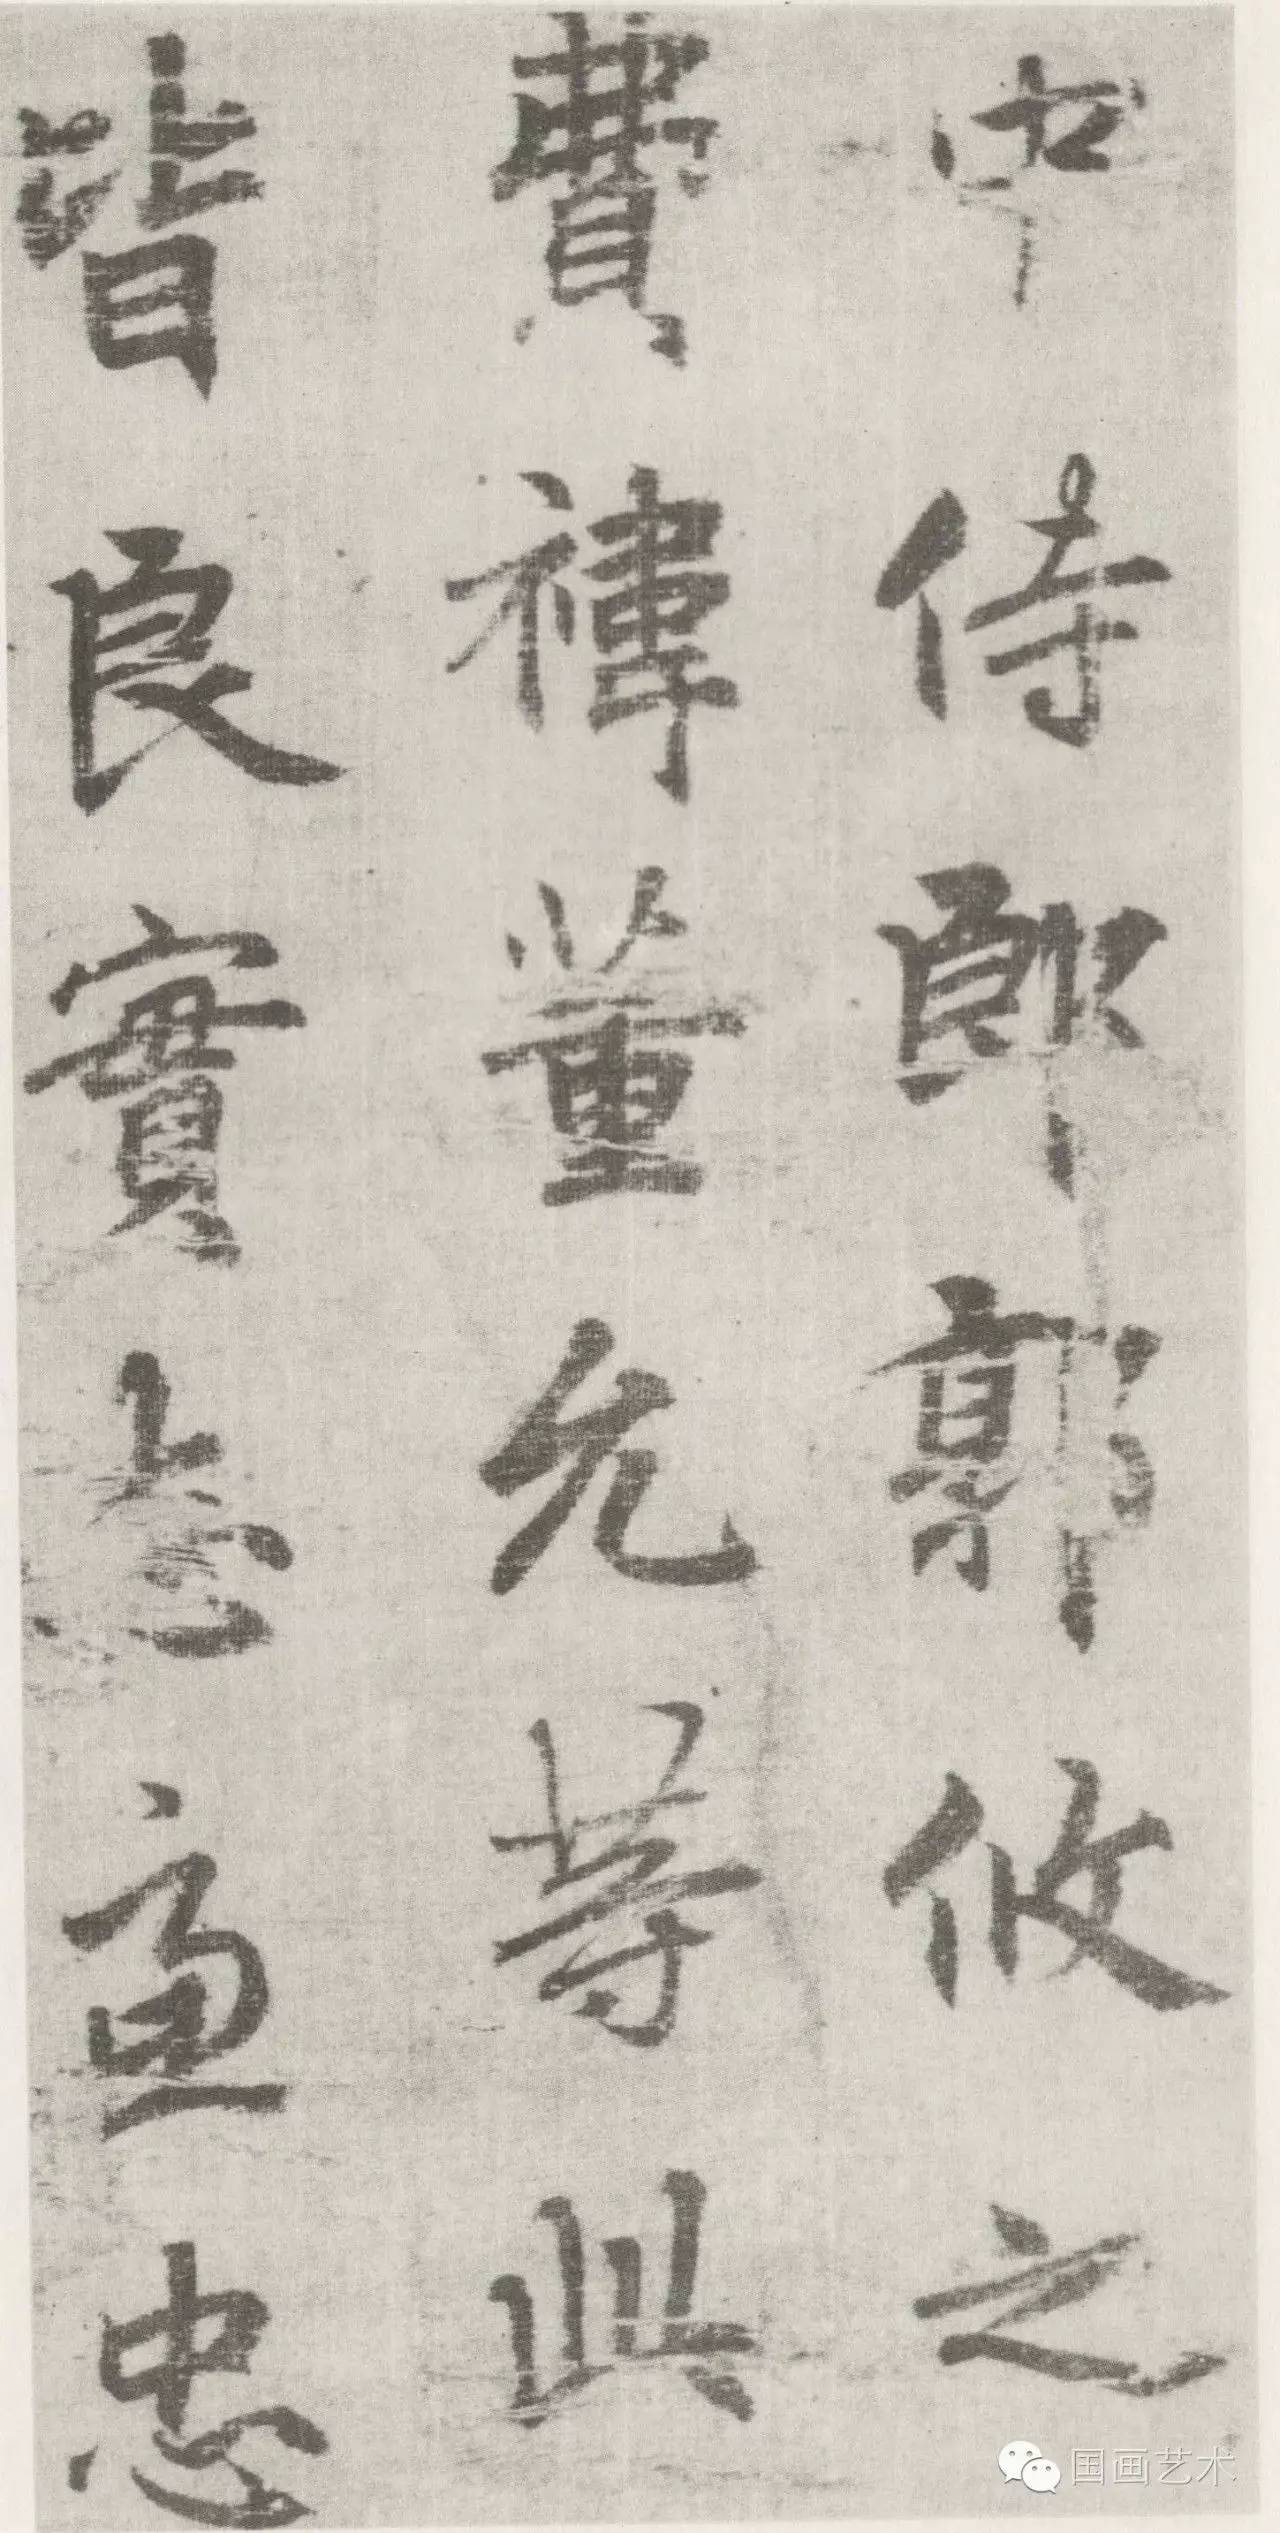 中侍郎郭攸之
費禕董允等此
皆良實志慮忠
国画艺术